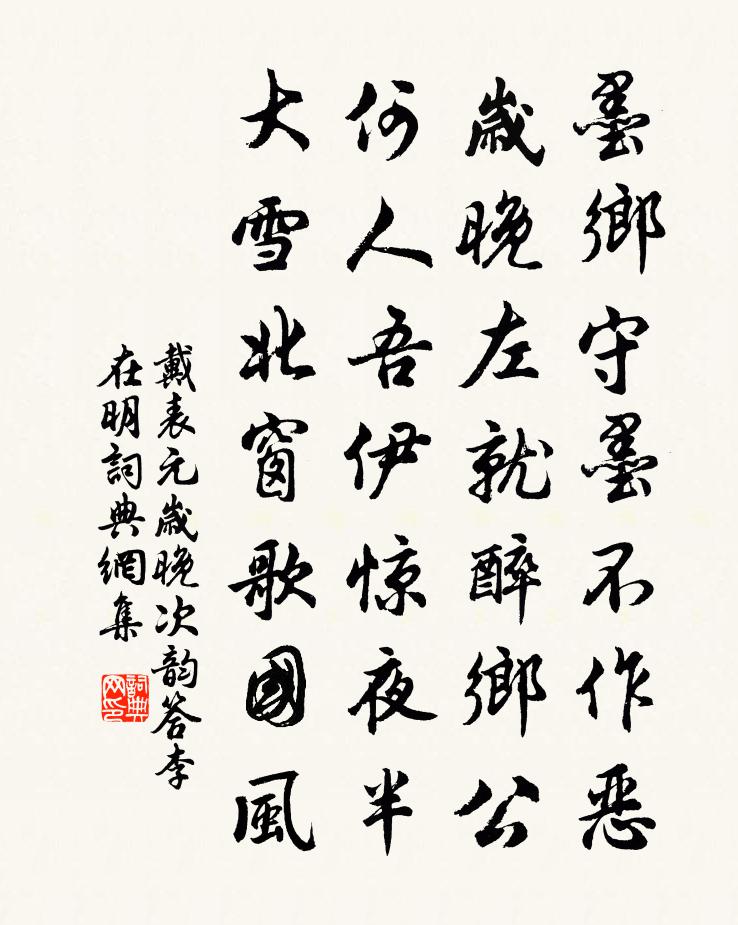 墨鄉守墨不作惡
歲晚左就醉鄉公
何人吾伊惊夜半
大雪北窗歌國風
戴表元歲晚次韵答李
在明詞典網集
詞典网印